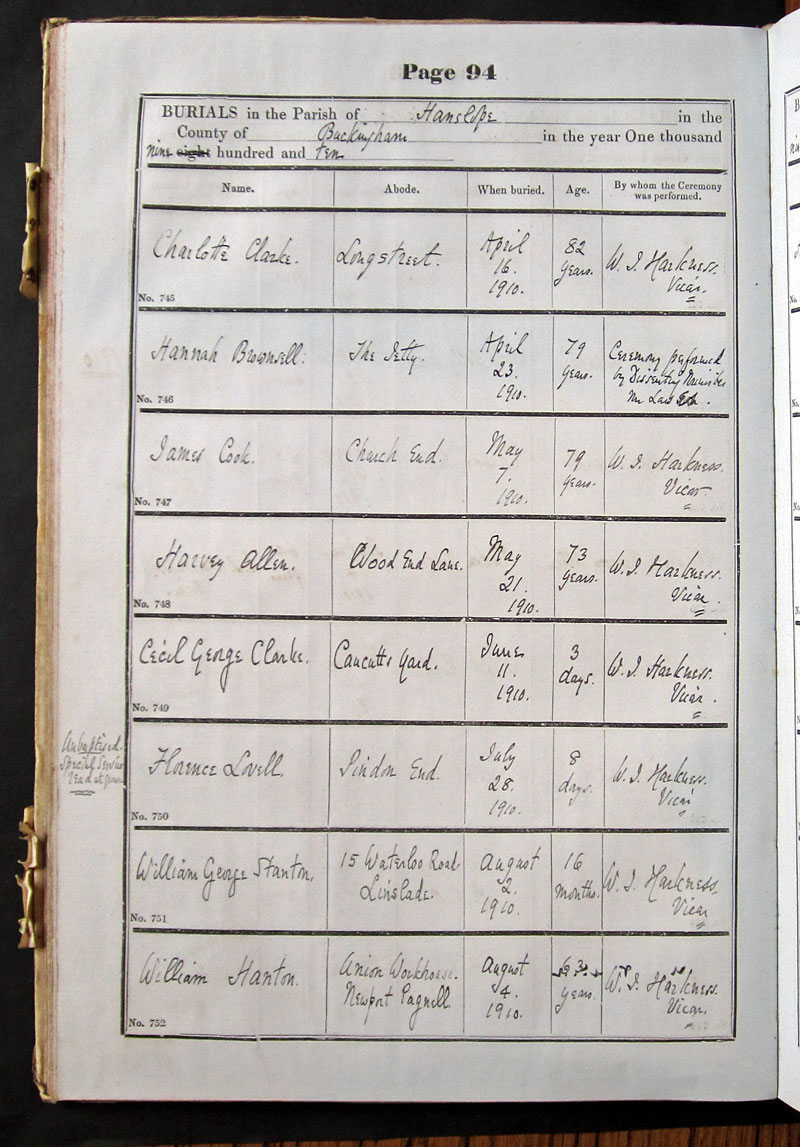 Page 94
BURIALS in the Parish of Hanslope in the
County of Buckingham in the year One thousand
nine eight hundred and ten
Name. Abode. When buried. Age. By whom the Ceremony was performed.
Charlotte Clarke. Longstreet. April 16. 1910. 82 years. W. J. Harkness. Vicar.
No. 745
Hannah Brownsell. The Jetty. April 23. 1910. 79 years. Ceremony performed by Dissenting Minister Mr
No. 746
James Cook. Church End. May 7. 1910. 79 years. W. J. Harkness. Vicar.
No. 747
Harvey Allen. Wood End Lane. May 21. 1910. 73 years. W. J. Harkness. Vicar.
No. 748
Cecil George Clarke. Yard. June 11. 1910. 3 days. W. J. Harkness. Vicar.
No. 749
Unbaptised.
Special Service
read at
Florence Lovell. End. July 28. 1910. 8 days. W. J. Harkness. Vicar
No. 750
William George Stanton, 15 Waterloo Road Linslade. August 2. 1910. 16 months. W. J. Harkness. Vicar
No. 751
William Hanton. Union Workhouse. Newport Pagnell. August 4. 1910. 63 years. W. J. Harkness. Vicar.
No. 752